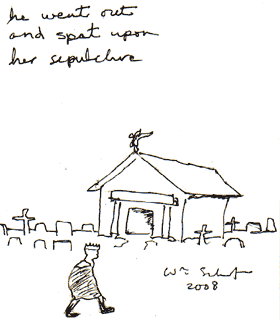 he went out
and spat upon
her sepulchre
Wm
2008